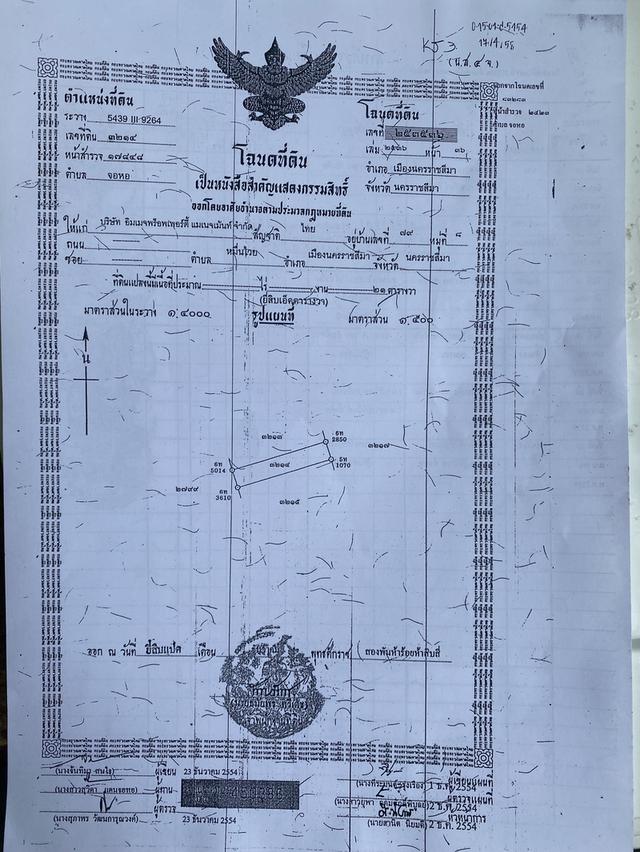 ตำแหน่งที่ดิน
ระวาง 5439 III 9264
เลขที่ดิน ๓๒๑๔
หน้าสำรวจ ๑๗๔๔๘
ตำบล จอหอ
โฉนดที่ดิน
เลขที่ ๒๕๓๕๓๖
เล่ม ๒๕๓๖ หน้า ๓๖
อำเภอ เมืองนครราชสีมา
จังหวัด นครราชสีมา
โฉนดที่ดิน
เป็นหนังสือสำคัญแสดงกรรมสิทธิ์
ออกโดยอาศัยอำนาจตามประมวลกฎหมายที่ดิน
ให้แก่ บริษัท อิมเมจพร็อพเพอร์ตี้ แมเนจเม้นท์ จำกัด สัญชาติ ไทย อยู่บ้านเลขที่ ๗๙ หมู่ที่ ๘
ถนน
ซอย ตำบล หมื่นไวย อำเภอ เมืองนครราชสีมา จังหวัด นครราชสีมา
ที่ดินแปลงนี้มีเนื้อที่ประมาณ ไร่ งาน ๒๑ ตารางวา
(ยี่สิบเอ็ดตารางวา)
มาตราส่วนในระวาง ๑:๔๐๐๐ รูปแผนที่ มาตราส่วน ๑:๕๐๐
น
๓๒๑๓
6ท 2850
๓๒๑๗
6ท 5014
๓๒๑๔
5ท 1070
๒๗๙๙
6ท 3610
๓๒๑๕
ออก ณ วันที่ ยี่สิบแปด เดือน พุทธศักราช สองพันห้าร้อยห้าสิบสี่
ผู้เขียน 23 ธันวาคม 2554
ผู้เขียนแผนที่
ผู้ทาน
ผู้ตรวจแผนที่
ผู้ตรวจ
23 ธันวาคม 2554
หัวหน้าการ
2 ธ.ค. 2554